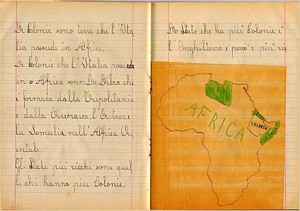 Le Colonie sono terre che l'Ita
lia possiede in Africa.
Le Colonie che l'Italia possiede
in Africa sono: La Libia che
è formata dalla Tripolitania
e dalla Cirenaica, l'Eritrea e
la Somalia nell'Africa Ori
entale.
Gli Stati più ricchi sono quel
li che hanno più Colonie.
Lo Stato che ha più Colonie è
l'Inghilterra e perciò è più
AFRICA